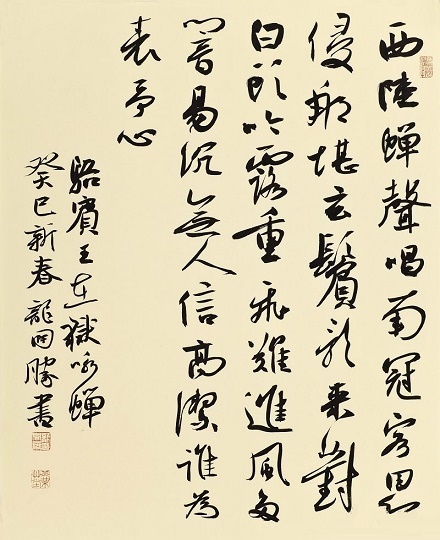 西陸蝉聲唱南冠客思
侵那堪玄鬢影来對
白頭吟露重飛難進風多
響易沉無人信高潔誰為
表予心
駱賓王在獄咏蝉
癸巳新春龍開勝書